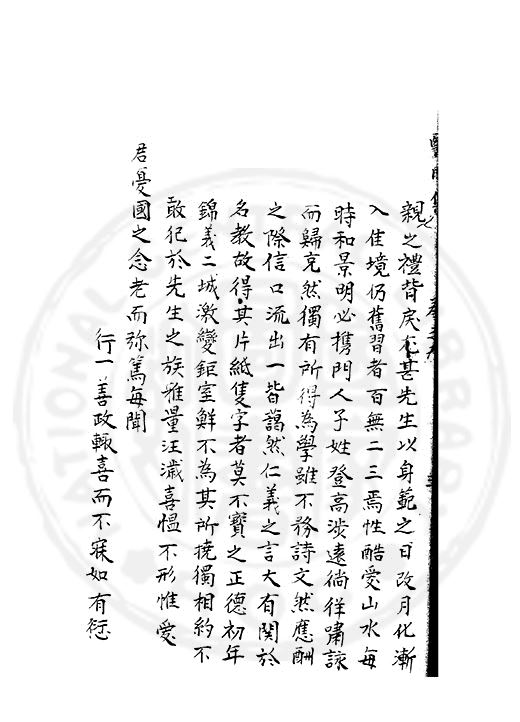 親之禮背戾尤甚先生以身範之日改月化漸
入佳境仍舊習者百無二三焉性酷愛山水每
時和景明必携門人子姓登高涉遠徜徉嘯詠
而歸充然獨有所得為學雖不務詩文然應酬
之際信口流出一皆藹然仁義之言大有関於
名教故得其片紙隻字者莫不寳之正德初年
錦義二城激變鉅室鮮不為其所撓獨相約不
敢犯於先生之族雅量汪濊喜慍不形惟愛
君憂國之念老而弥篤每聞
行一善政輙喜而不寐如有愆